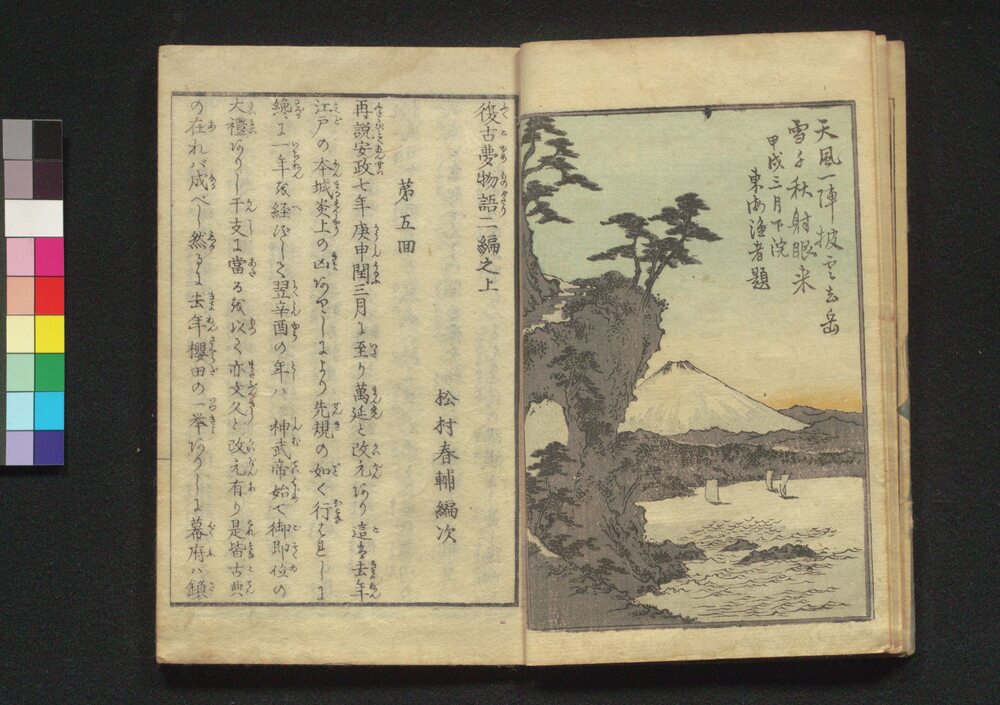 天風一陣披雲去岳
雪千秋射眼来
甲戌三月下院
東海漁者題
復古夢物語二編之上
松村春輔編次
第五回
再説安政七年庚申閏三月に至り萬延と改元あり這は去年
江戸の本城炎上の凶ありしにより先規の如く行はれしに
纔に一年を経ずして翌辛酉の年ハ神武帝始て御即位の
大禮ありし干支に當るを以て亦文久と改元有り是皆古典
の在れバ成べし然るに去年櫻田の一挙ありしよ幕府ハ鎖